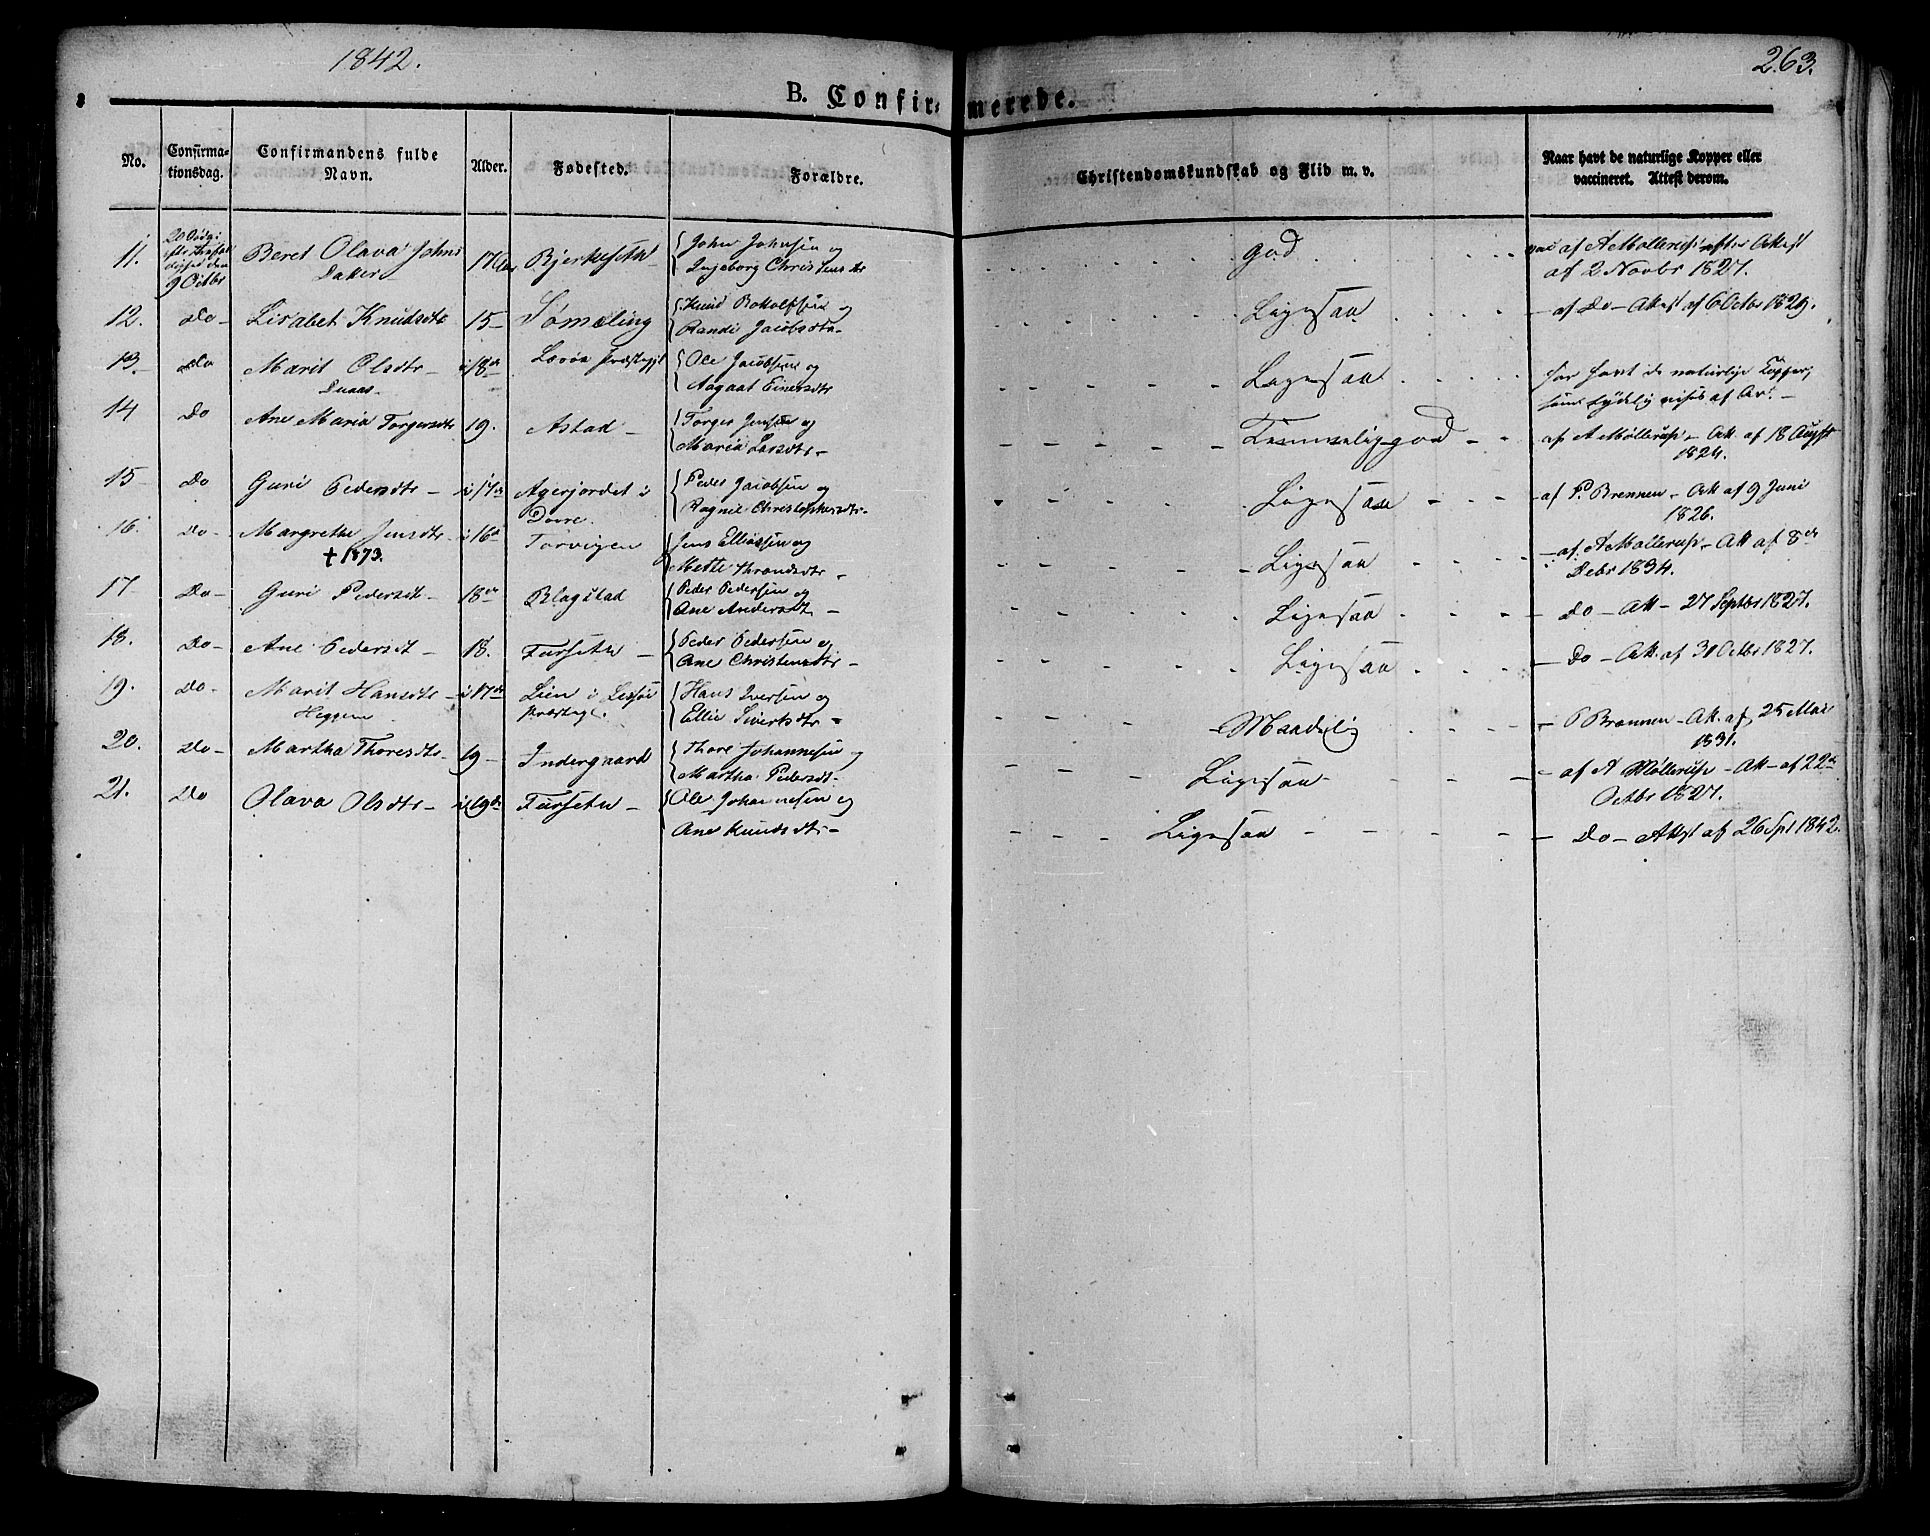 1842.
263.
B. Confirmerede.
No.
Confirmationsdag.
Confirmandens fulde Navn.
Alder.
Fødested.
Forældre.
Christendomskundskab og Flid m. v.
Naar havt de naturlige Kopper eller vaccineret. Attest derom.
11. 9 Octbr Beret Olava Johns Daker 17 Bjerkesett John Johnsen og
Ingeborg Christensdtr god af A Mollerup efter Attest
af 2 Novbr 1827.
12. Do Lisabet Knudsdtr 15 Sømeling Knud Botolfsen og
Randi Jacobsdtr Ligesaa af Do Attest af 6 Octbr 1829.
13. Do Marit Olsdtr i 18 Ole Jacobsen og
Duaas Aagaat Einersdtr Ligesaa har havt de naturlige Kopper,
14 Do Ane Maria Torgersdtr 19. Astad Torger Jensen og
Maria Larsdtr Temmelig god af A Møllerup Att. af 18 August
1824.
15 Do Guri Pedersdtr i 17 Agerjordet i Dovre. Peder Jacobsen og
Ragnil Christophersdtr Ligesaa af P. Brennen Att af 9 Juni
1826.
16. Do Margrethe Jensdtr i 16 Torvigen Jens Ellissen og
† 1873. Mette Throndsdtr Ligesaa af A Mollerup Att af 8de
Debr 1834.
17 Do Guri Pedersdt 18 Blagstad Peder Pedersen og
Ane Andersdt Ligesaa Do Att 27 Septbr 1827.
18. Do Ane Pedersdt 18. Furseth Peder Pedersen og
Ane Christensdtr Ligesaa Do Att. af 31 Octbr 1827.
19. Do Marit Hansdtr i 17de Lien i Lessøe Hans Iversen og
Heggem Præstegl. Ellie Siverksdtr Maadelig P Brennen Att. af 25 Mai
1831.
20. Do Martha Thoresdtr 19 Indergaard Thore Johannesen og
Martha Pedersdt Ligesaa af A Møllerup Att af 22d
Octbr 1827.
21. Do Olava Olsdtr i 19de Furseth Ole Johannesen og
Ane Knudsdtr Ligesaa Do Attest af 26 Spt 1842.